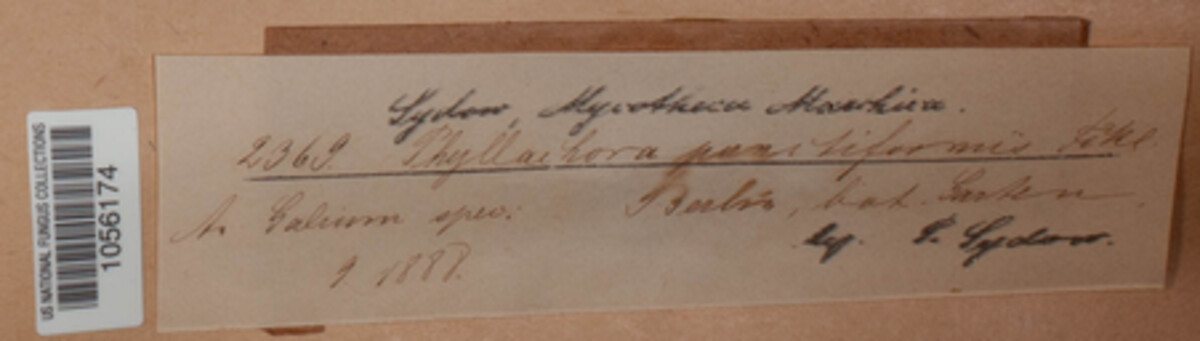 US NATIONAL FUNGUS COLLECTIONS
1056174
Sydow, Mycotheca Marchica.
2369. Phyllachora punctiformis Fckl.
A. Galium spec. Berlin, bot. Garten.
9 1888.
leg. P. Sydow.